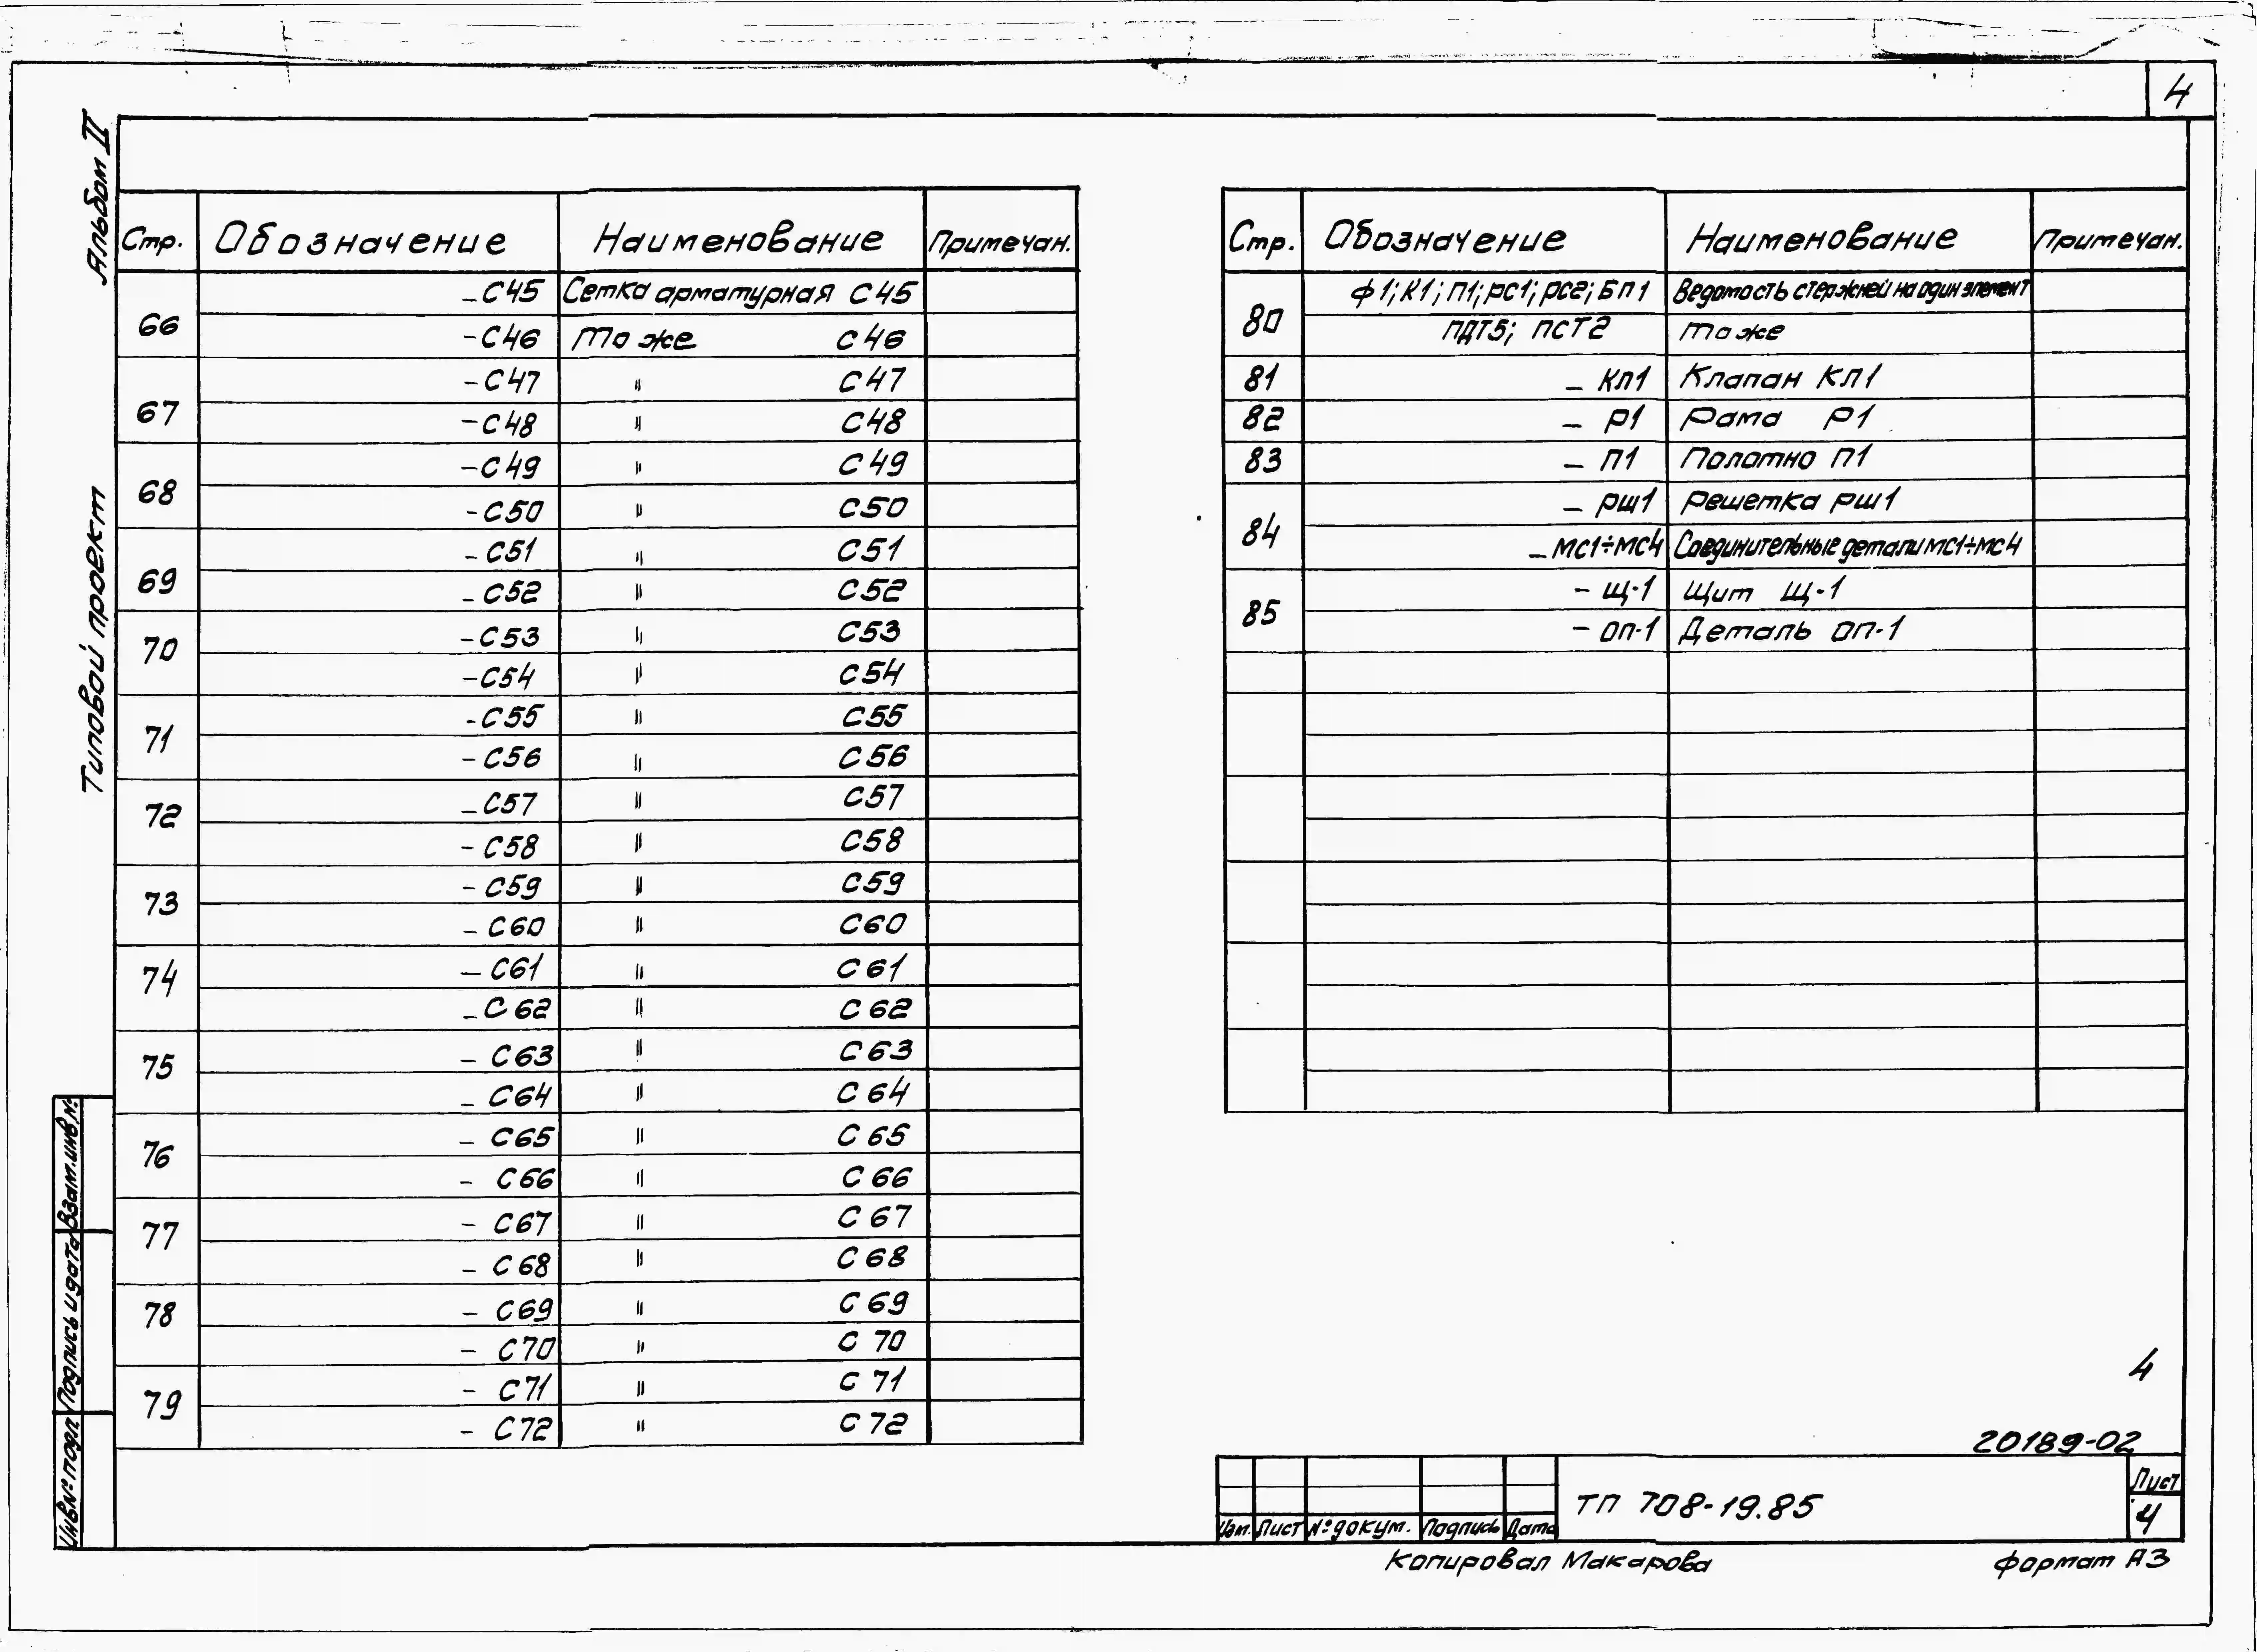 4
Альбом II
Типовой проект
Стр. Обозначение Наименование Примечан.
66 -С45 Сетка арматурная С45
-С46 То же С46
67 -С47 " С47
-С48 " С48
68 -С49 " С49
-С50 " С50
69 -С51 " С51
-С52 " С52
70 -С53 " С53
-С54 " С54
71 -С55 " С55
-С56 " С56
72 -С57 " С57
-С58 " С58
73 -С59 " С59
-С60 " С60
74 -С61 " С61
-С62 " С62
75 -С63 " С63
-С64 " С64
76 -С65 " С65
-С66 " С66
77 -С67 " С67
-С68 " С68
78 -С69 " С69
-С70 " С70
79 -С71 " С71
-С72 " С72
Стр. Обозначение Наименование Примечан.
80 Ф1; К1; П1; РС1; РС2; БП1 Ведомость стержней на один элемент
ПДТ5; ПСТ2 То же
81 - КЛ1 Клапан КЛ1
82 - Р1 Рама Р1
83 - П1 Полотно П1
84 - РШ1 Решетка РШ1
- МС1÷МС4 Соединительные детали МС1÷МС4
85 - Щ-1 Щит Щ-1
- ОП-1 Деталь ОП-1
Взам.инв.№
Подпись и дата
Инв.№ подл.
4
20189-02
Изм. Лист № докум. Подпись Дата
ТП 708-19.85
Лист
4
Копировал Макарова
Формат А3